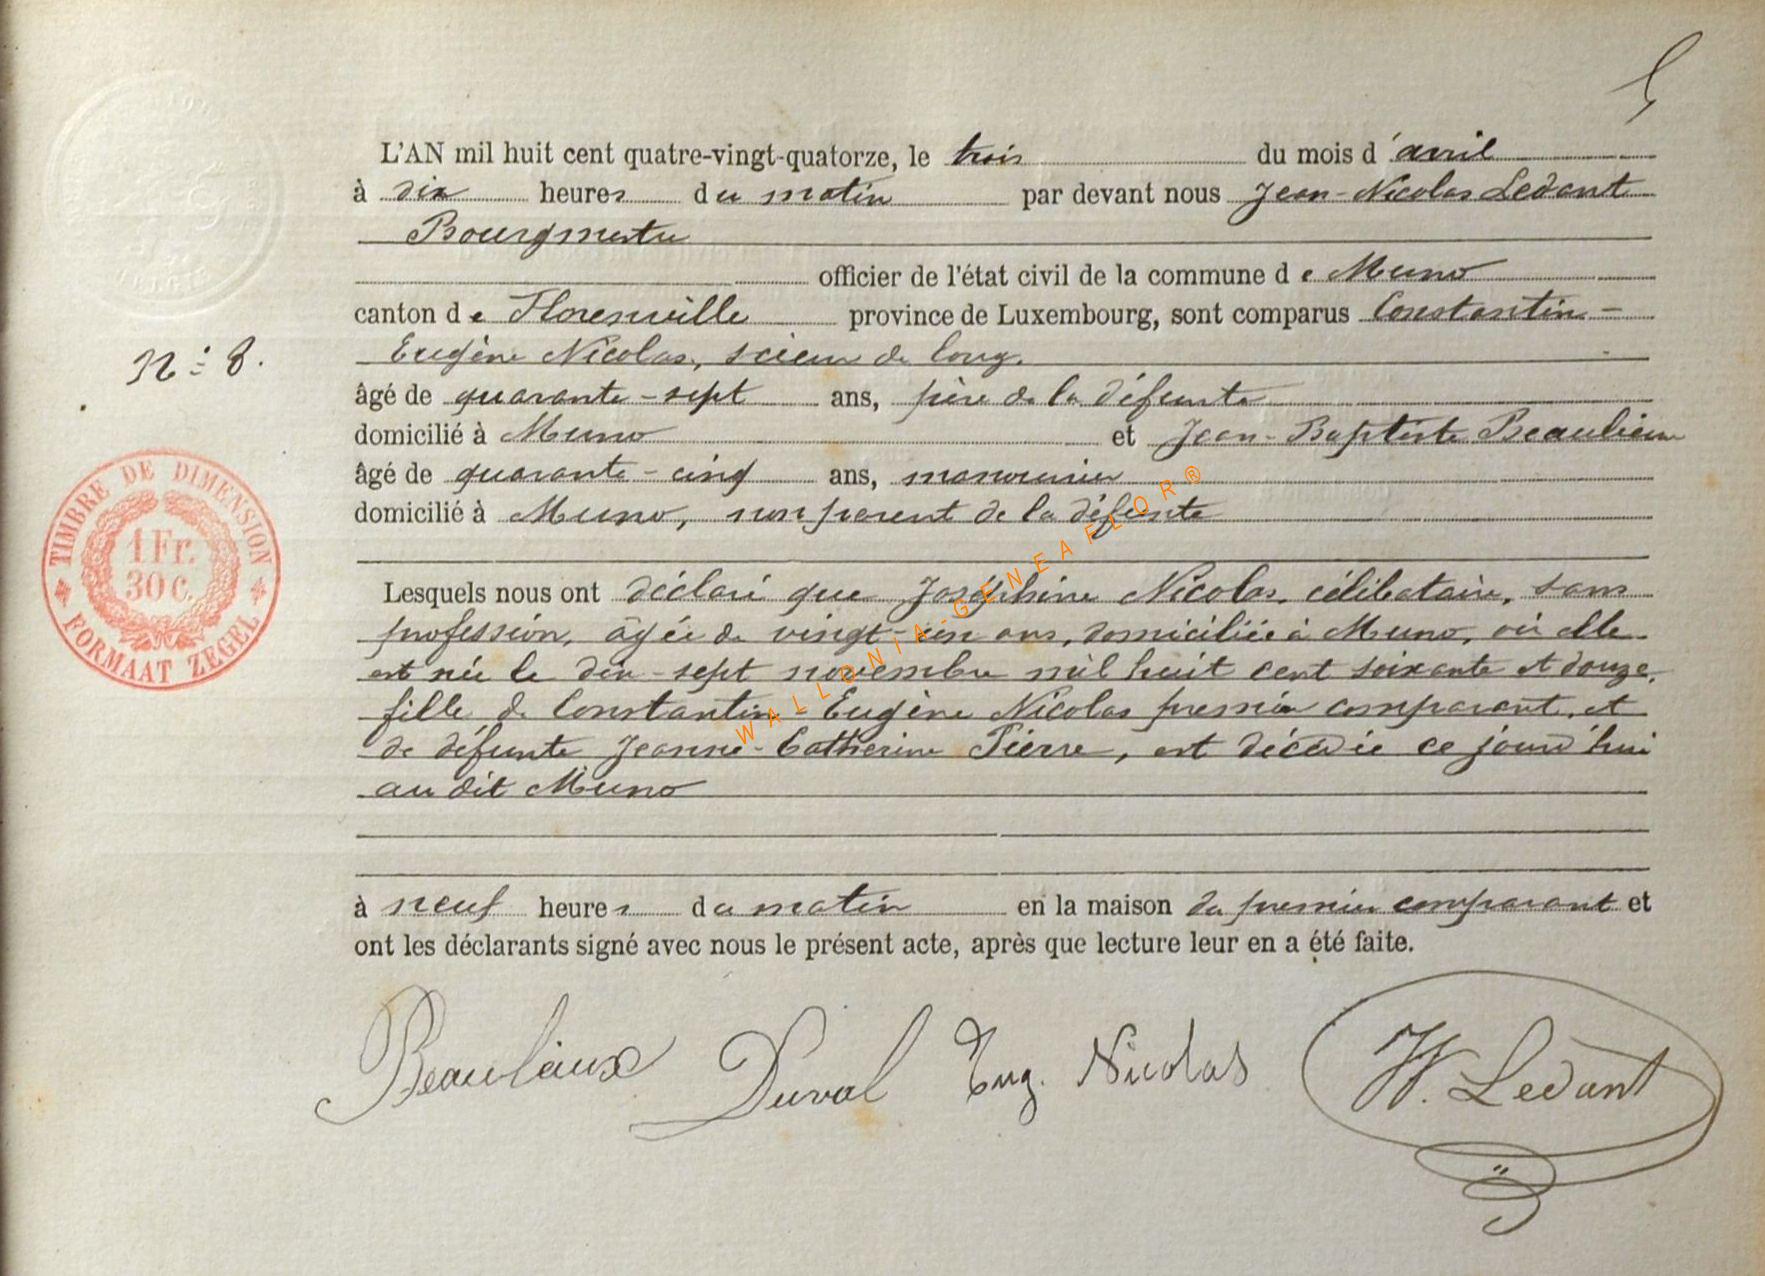 5
L'AN mil huit cent quatre-vingt-quatorze, le trois du mois d'avril
à dix heures du matin par devant nous Jean-Nicolas Ledant
Bourgmestre
officier de l'état civil de la commune de Muno
canton de Florenville province de Luxembourg, sont comparus Constantin-
Eugène Nicolas, scieur de long,
N° 8.
âgé de quarante-sept ans, père de la défunte
domicilié à Muno et Jean-Baptiste Beaulieux
âgé de quarante-cinq ans, manouvrier
domicilié à Muno, non parent de la défunte
TIMBRE DE DIMENSION
1 Fr.
30 c.
FORMAAT ZEGEL
WALLONIA-GENEAFLOR®
Lesquels nous ont déclaré que Joséphine Nicolas, célibataire, sans
profession, âgée de vingt-un ans, domiciliée à Muno, où elle
est née le dix-sept novembre mil huit cent soixante et douze,
fille de Constantin-Eugène Nicolas premier comparant, et
de défunte Jeanne-Catherine Pierre, est décédée ce jourd'hui
au dit Muno
à neuf heures du matin en la maison du premier comparant et
ont les déclarants signé avec nous le présent acte, après que lecture leur en a été faite.
Beaulieux Duval Eug. Nicolas N. Ledant